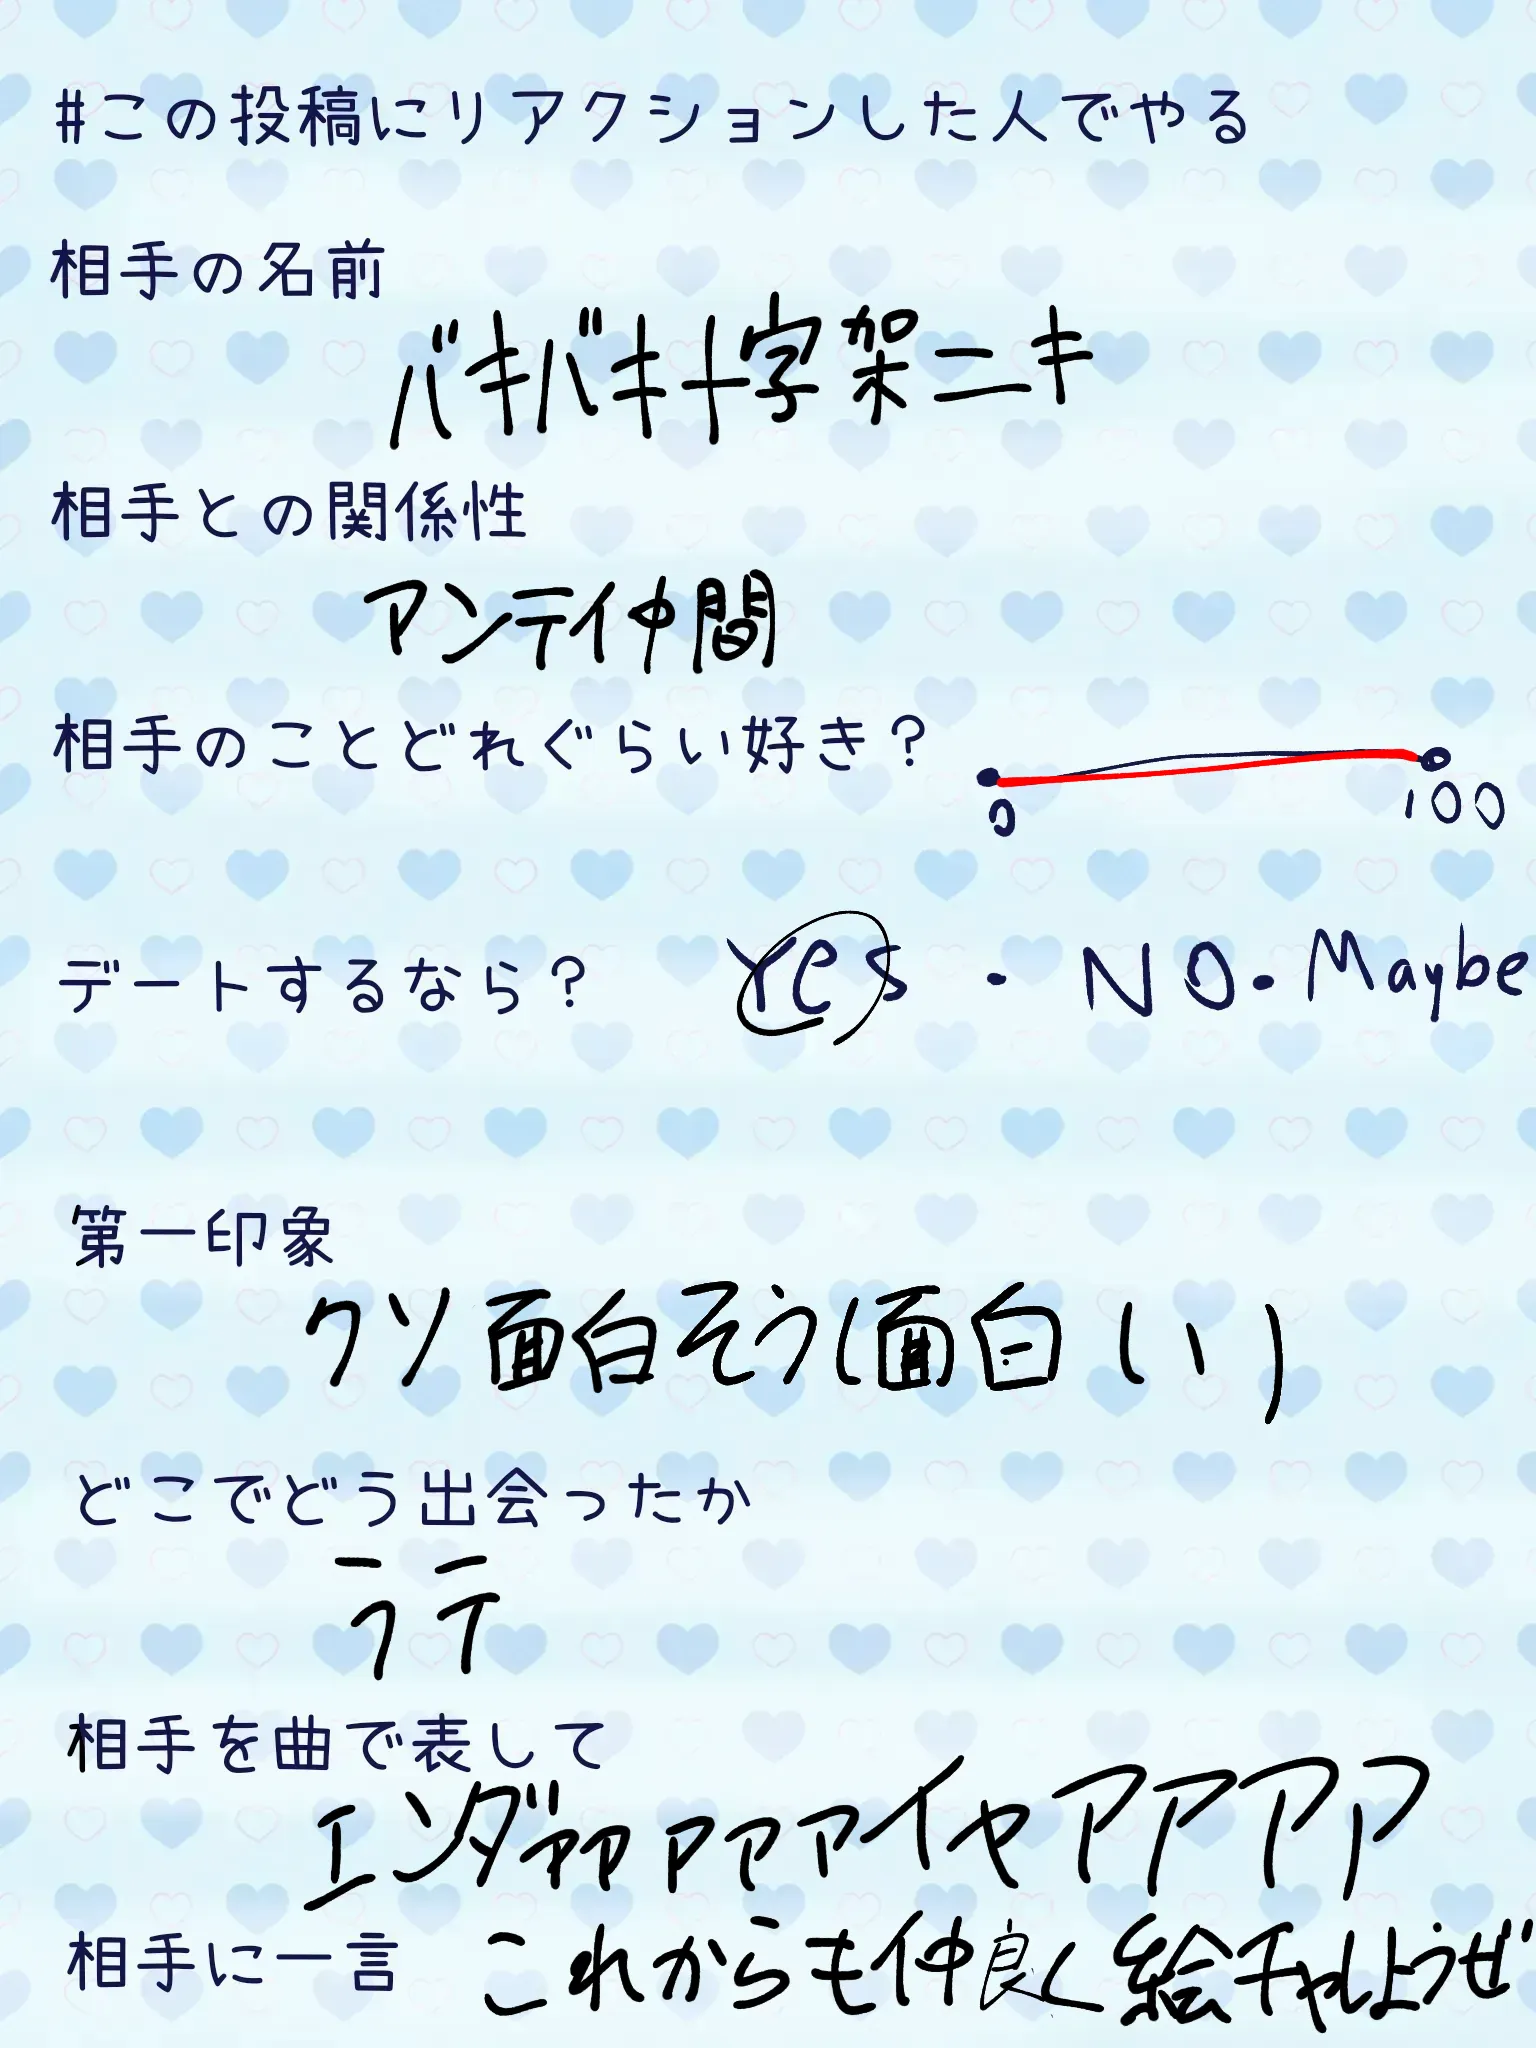 #この投稿にリアクションした人でやる
相手の名前
バキバキ十字架ニキ
相手との関係性
アンテイ仲間
相手のことどれぐらい好き?
0 100
デートするなら? Yes・NO・Maybe
第一印象
クソ面白そう(面白い)
どこでどう出会ったか
ラテ
相手を曲で表して
エンダァァァァァァイヤアアアア
相手に一言 これからも仲良く絵チャしようぜ